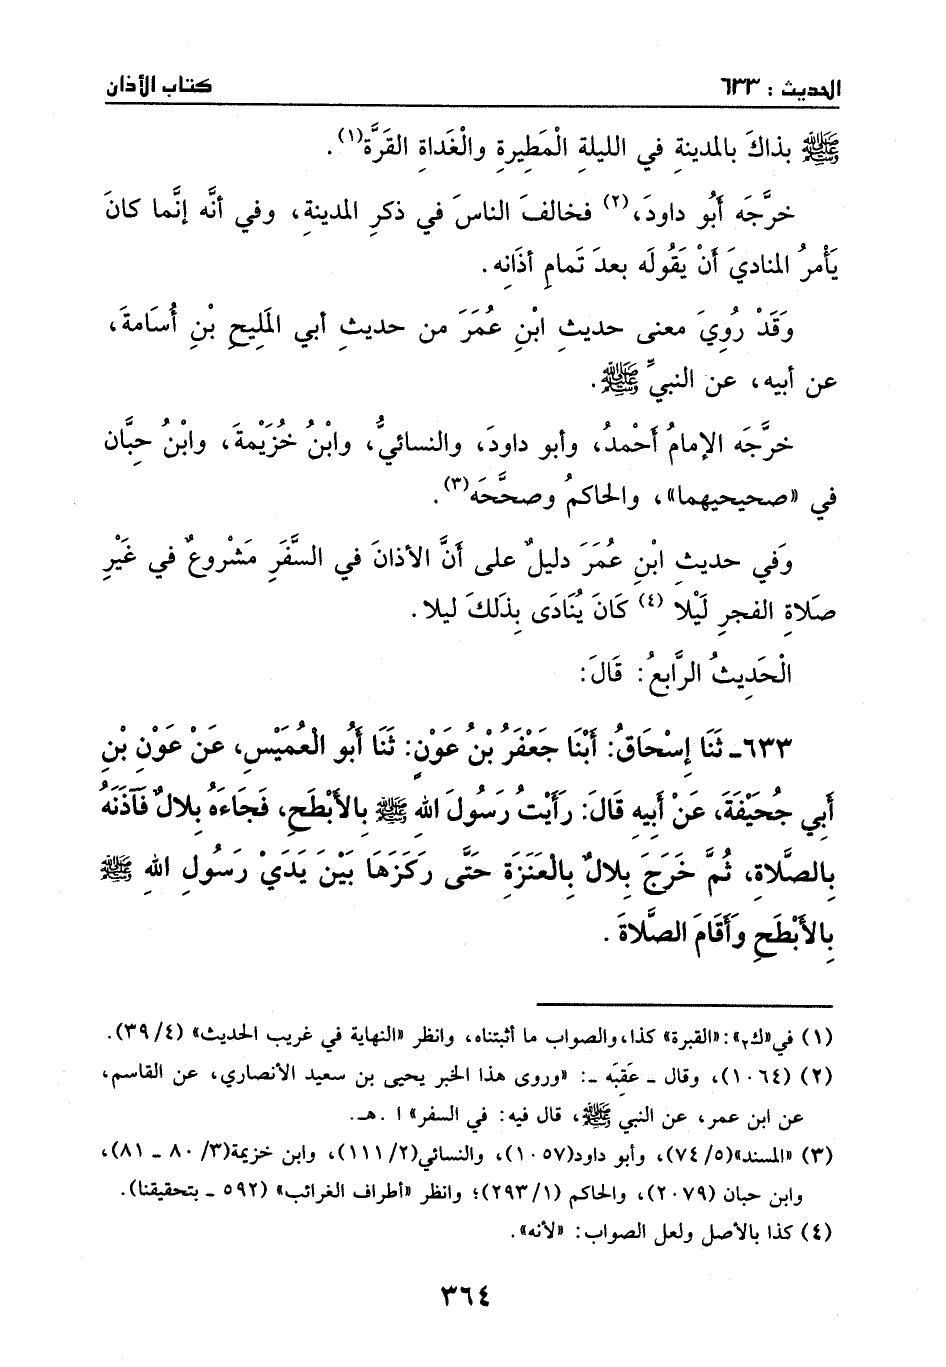 الحديث : ٦٣٣ كتاب الأذان
ﷺ بذاكَ بالمدينةِ في الليلةِ الْمَطِيرةِ والْغَداةِ القَرَّة(١).
خرَّجَه أَبُو داودَ،(٢) فخالفَ الناسَ في ذكرِ المدينةِ، وفي أنَّه إنَّما كانَ
يَأْمرُ المناديَ أَنْ يَقُولَه بعدَ تَمامِ أذَانِه.
وَقَدْ رُوِيَ معنى حديثِ ابْنِ عُمَرَ من حديثِ أبي المَلِيحِ بْنِ أُسَامةَ،
عن أبيه، عن النبيِّ ﷺ.
خرَّجَه الإمامُ أَحْمدُ، وأبو داودَ، والنسائيُّ، وابْنُ خُزَيْمةَ، وابْنُ حِبَّان
في «صحيحيهما»، والحاكمُ وصحَّحَه(٣).
وَفي حديثِ ابْنِ عُمَرَ دليلٌ على أَنَّ الأذانَ في السَّفَرِ مَشْروعٌ في غَيْرِ
صَلاةِ الفجرِ لَيْلا (٤) كَانَ يُنَادَى بِذَلكَ ليلا.
الْحَدِيثُ الرَّابعُ: قَالَ:
٦٣٣ـ ثَنَا إِسْحَاقُ: أَبْنَا جَعْفَرُ بْنُ عَوْنٍ: ثَنَا أَبُو الْعُمَيْسِ، عَنْ عَوْنِ بْنِ
أَبِي جُحَيْفَةَ، عَنْ أَبِيهِ قَالَ: رَأَيْتُ رَسُولَ اللهِ ﷺ بِالأَبْطَحِ، فَجَاءَهُ بِلالٌ فَآذَنَهُ
بِالصَّلاةِ، ثُمَّ خَرَجَ بِلالٌ بِالْعَنَزَةِ حَتَّى رَكَزَهَا بَيْنَ يَدَيْ رَسُولِ اللهِ ﷺ
بِالأَبْطَحِ وَأَقَامَ الصَّلاةَ.
(١) في«ك٢»:«القبرة» كذا،والصواب ما أثبتناه، وانظر «النهاية في غريب الحديث» (٣٩/٤).
(٢) (١٠٦٤)، وقال ـ عَقِبَه ـ: «وروى هذا الخبر يحيى بن سعيد الأنصاري، عن القاسم،
عن ابن عمر، عن النبي ﷺ، قال فيه: في السفر» ا .هـ.
(٣) «المسند»(٧٤/٥)، وأبو داود(١٠٥٧)، والنسائي(١١١/٢)، وابن خزيمة(٣/ ٨٠ ـ ٨١)،
وابن حبان (٢٠٧٩)، والحاكم (٢٩٣/١)؛ وانظر «أطراف الغرائب» (٥٩٢ ـ بتحقيقنا).
(٤) كذا بالأصل ولعل الصواب: «لأنه».
٣٦٤